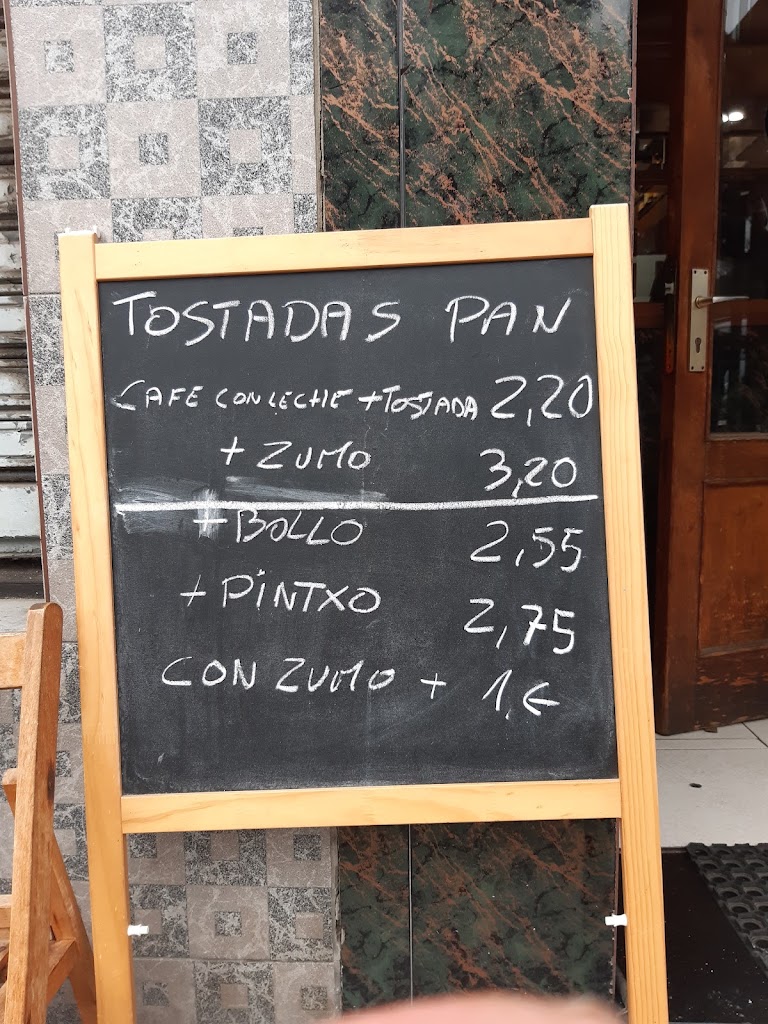 TOSTADAS PAN
CAFE CON LECHE + TOSTADA 2,20
+ ZUMO 3,20
+ BOLLO 2,55
+ PiNTXO 2,75
CON ZUMO + 1,€